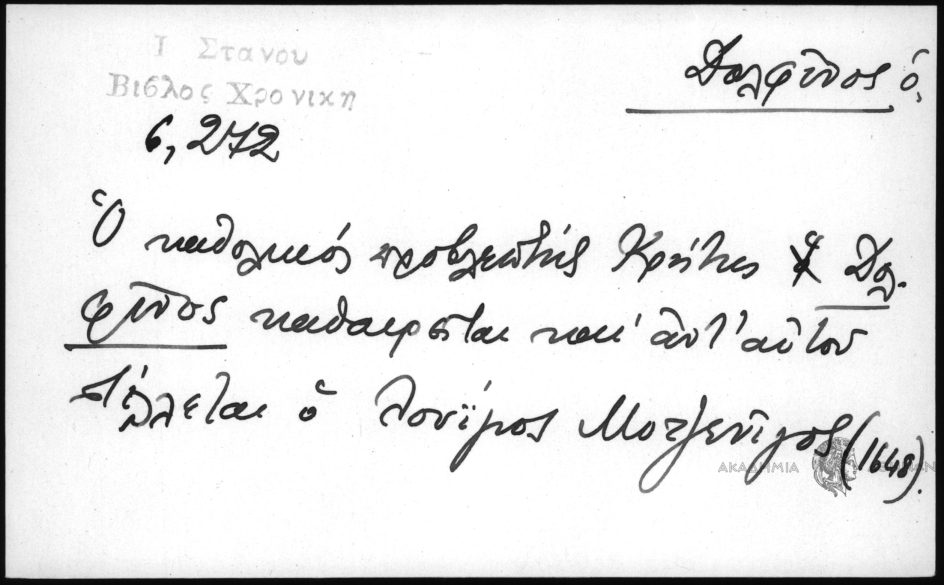 Ι Στανου
Βιβλος Χρονικη
6, 272
Δολφῖνος ὁ,
Ὁ καθολικός προβλεπτής Κρήτης Δολ-
φῖνος καθαιρεῖται και ἀντ' αὐτοῦ
στέλλεται ὁ Λουΐγος Μοτζενῖγος (1648).
ΑΚΑΔΗΜΙΑ